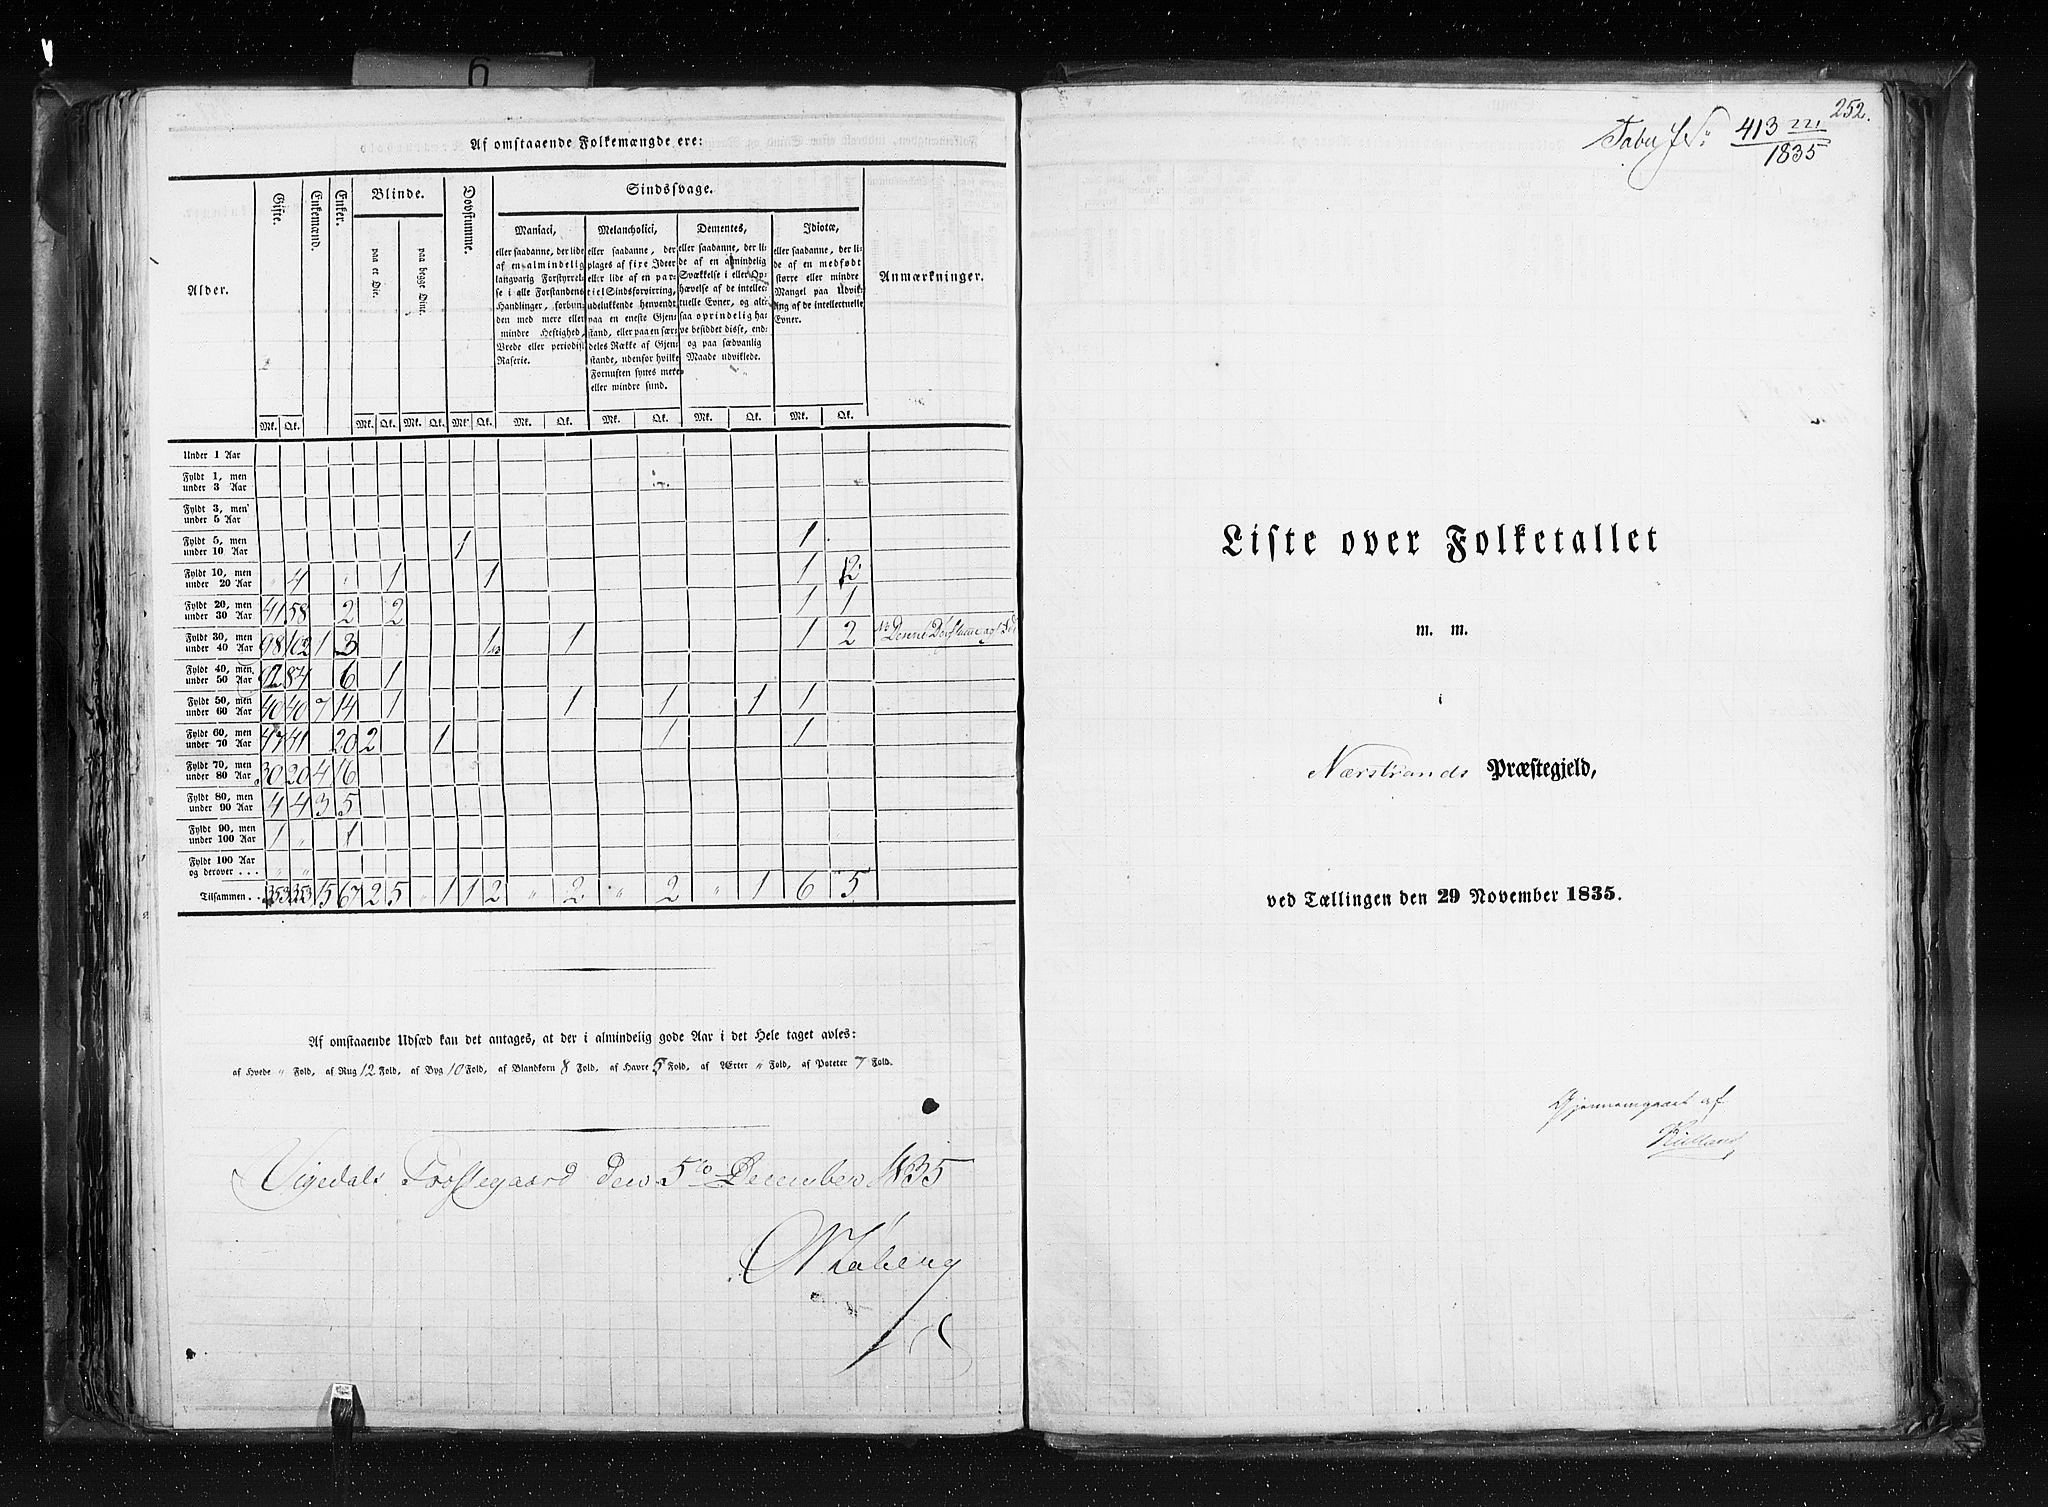 6
Af omstaaende Folkemængde ere:
Alder.
Gifte.
Enkemænd.
Enker.
Blinde.
paa et Øie.
paa begge Øine.
Døvstumme.
Sindssvage.
Maniaci,
eller saadanne, der lide
af en almindelig
langvarig Forstyrrel-
se i alle Forstandens
Handlinger, forbun-
den med mere eller
mindre Heftighed,
Vrede eller periodisk
Raserie.
Melancholici,
eller saadanne, der
plages af fixe Ideer
eller lide af en par-
tiel Sindsforvirring,
udelukkende henvendt
paa en eneste Gjen-
stand, eller paa en sær-
deles Række af Gjen-
stande, udenfor hvilke
Fornuften synes mere
eller mindre sund.
Dementes,
eller saadanne, der li-
de af en almindelig
Svækkelse i eller Op-
hævelse af de intellec-
tuelle Evner, og alt-
saa oprindelig ha-
ve besiddet disse, end-
og paa sædvanlig
Maade udviklede.
Idiotæ,
eller saadanne, der li-
de af en medfødt
større eller mindre
Mangel paa Udvik-
ling af de intellectuelle
Evner.
Anmærkninger.
Mk. Qk. Mk. Qk. Mk. Qk. Mk. Qk. Mk. Qk. Mk. Qk. Mk. Qk. Mk. Qk.
Under 1 Aar
Fyldt 1, men
under 3 Aar
Fyldt 3, men
under 5 Aar
Fyldt 5, men
under 10 Aar 1 1
Fyldt 10, men
under 20 Aar " 4 1 1 1 2
Fyldt 20, men
under 30 Aar 41 58 2 2 1 1
Fyldt 30, men
under 40 Aar 98 102 1 3 1 1 1 2 Denne Døvstumme
Fyldt 40, men
under 50 Aar 92 84 6 1
Fyldt 50, men
under 60 Aar 40 40 7 14 1 1 1 1 1
Fyldt 60, men
under 70 Aar 47 41 20 2 1 1 1
Fyldt 70, men
under 80 Aar 30 20 4 16
Fyldt 80, men
under 90 Aar 4 4 3 5
Fyldt 90, men
under 100 Aar 1 " 1
Fyldt 100 Aar
og derover . . . " "
Tilsammen . . 353 353 15 67 2 5 " 1 1 2 " 2 " 2 " 1 6 5
Af omstaaende Udsæd kan det antages, at der i almindelig gode Aar i det Hele taget avles:
af Hvede " Fold, af Rug 12 Fold, af Byg 10 Fold, af Blandkorn 8 Fold, af Havre 5 Fold, af Ærter " Fold, af Poteter 7 Fold.
Vigedals Præstegaard den 5te December 1835
252.
Tabel No 413 m/1835
Liste over Folketallet
m. m.
i
Nærstrands Præstegjeld,
ved Tællingen den 29 November 1835.
Gjennemgaaet af